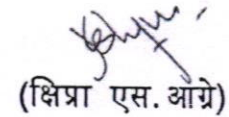 (क्षिप्रा एस. आग्रे)